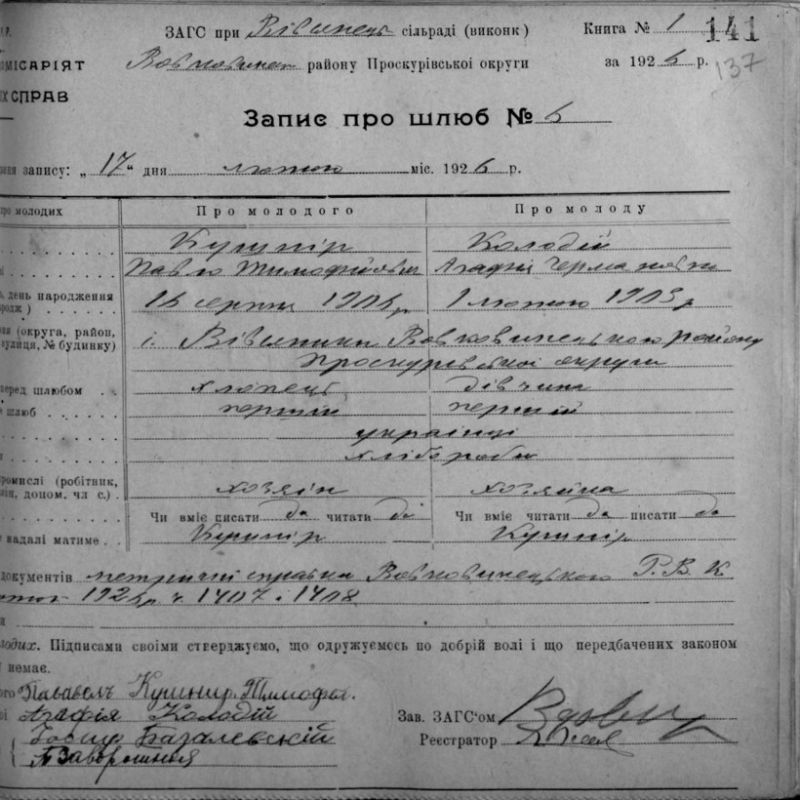 ЗАГС при Вівсянець сільраді (виконк) Книга № 1 141
ОМІСАРІЯТ району Проскурівської округи за 1926 р. 137
ИХ СПРАВ
Запис про шлюб № 6
запису: „17" дня лютого міс. 1926 р.
про молодих Про молодого Про молоду
Кушнір Колодій
Павло Тимофійович Агафія Германовна
день народження 16 серпня 1906 р 1 лютого 1905 р
(округа, район, с. Вівсяники Вовковинецького району
вулиця, № будинку) Проскурівської округи
перед шлюбом хлопець дівчина
шлюб перший перший
українці
хлібороби
промислі (робітник, хозяїн хозяйка
допом. чл с.)
Чи вміє писати да читати да Чи вміє читати да писати да
надалі матиме Кушнір Кушнір
документів метричні справки Вовковинецького Р.В.К
1926 р. ч. 1407 і 1408
молодих. Підписами своїми стверджуємо, що одружуємось по добрій волі і що передбачених законом
немає.
Кушнир Тимофе
Агафія Колодій Зав. ЗАГС'ом
Базалевский Реєстратор